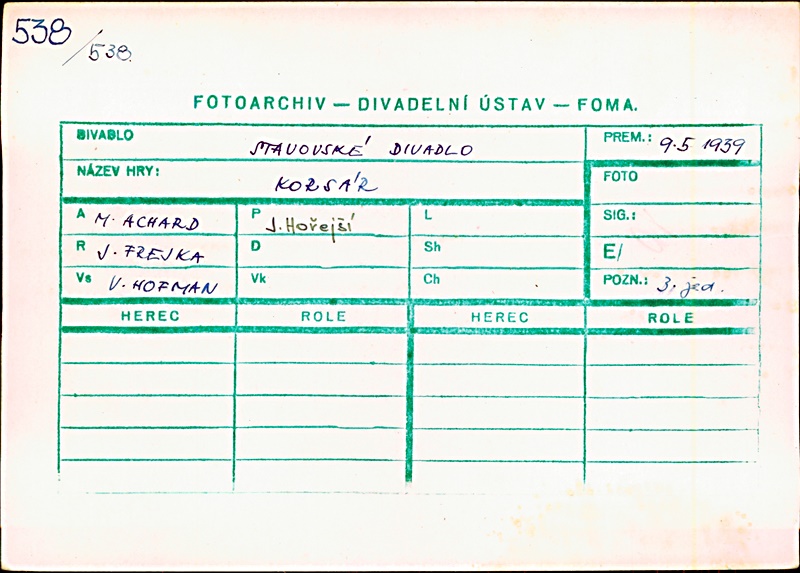 538
/538.
FOTOARCHIV — DIVADELNÍ ÚSTAV — FOMA.
DIVADLO STAVOVSKÉ DIVADLO PREM.: 9.5 1939
NÁZEV HRY: KORSÁR FOTO
A M. ACHARD P J. Hořejší L SIG.:
R J. FREJKA D Sh E/
Vs V. HOFMAN Vk Ch POZN.: 3. jed.
HEREC ROLE HEREC ROLE